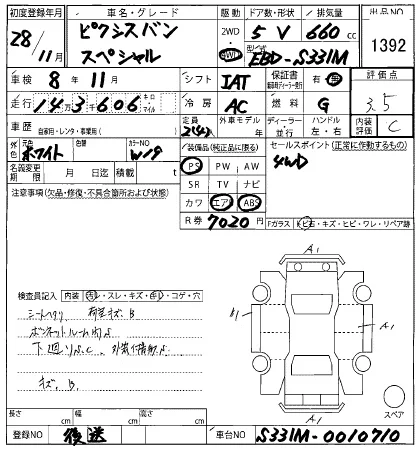 初度登録年月 車名・グレード 駆動 ドア数・形状 排気量 出品NO
28/11月 ピクシスバン 2WD 5 V 660 cc 1392
スペシャル 4WD 型式 EBD-S331M
車検 8年 11月 シフト IAT 保証書 有 無 評価点
走行 14万3千606 キロ・マイル 冷房 AC 燃料 G 3.5
車歴 自家用・レンタ・事業用( ) 定員 2(4)人 外車モデル 年 ディーラー・並行 ハンドル 左・右 内装評価 C
外色 元色 ホワイト 色替 カラーNO W19 装備品(純正品に限る) セールスポイント(正常に作動するもの)
名義変更期限 月 日迄 積載 t PS PW AW 4WD
注意事項(欠品・修復・不具合箇所および状態) SR TV ナビ
カワ エアB ABS
R券 7020円 Fガラス キズ・ヒビ・ワレ・リペア跡
A1
検査員記入 内装 スレ・キズ・コゲ・穴
シートヘタリ 荷室キズ、B A1
ボンネットルーム内
下廻り
キズ、B、
A1
スペア
長さ cm 幅 cm 高さ cm
登録NO 後送 車台NO S331M-0010710